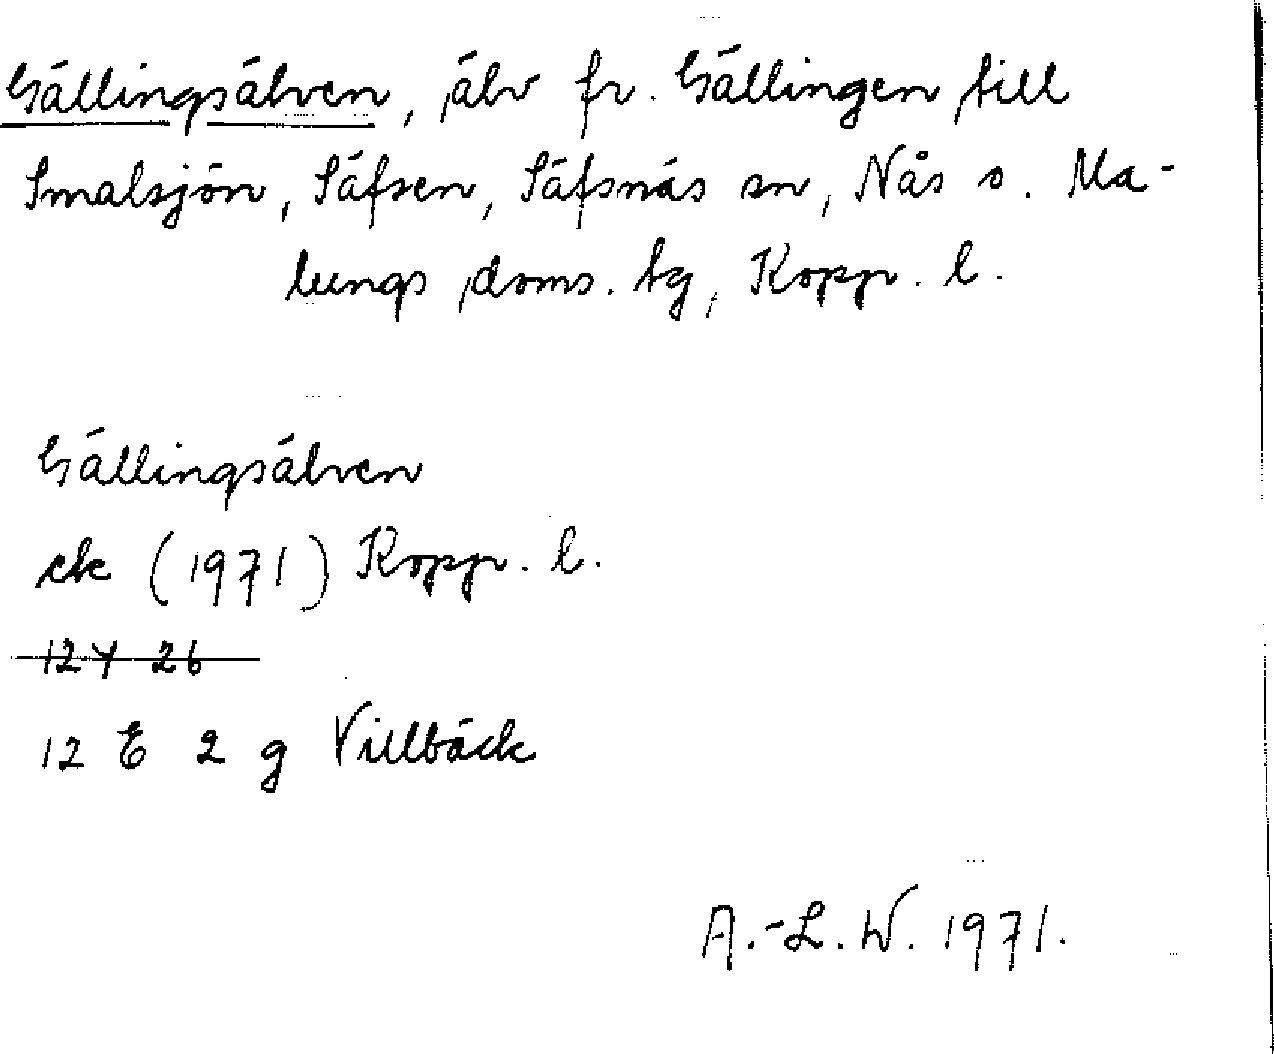 Gällingsälven, älv fr. Gällingen till
Smalsjön, Säfsen, Säfsnäs sn, Nås o. Ma-
lungs doms. tg, Kopp. l.
Gällingsälven
ek (1971) Kopp. l.
12Y 26
12 E 2 g Villbäck
A.-L. W. 1971.